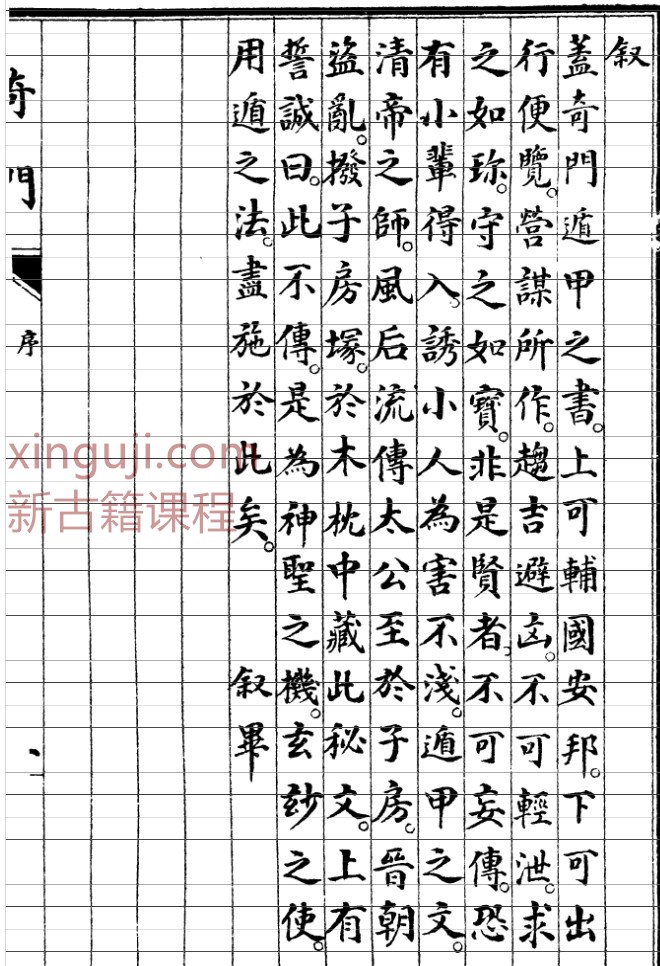 叙
蓋奇門遁甲之書。上可輔國安邦。下可出
行便覽。營謀所作。趨吉避凶。不可輕泄。求
之如珎。守之如寶。非是賢者、不可妄傳。恐
有小輩得入。誘小人為害不淺。遁甲之文。
清帝之師。風后流傳太公至於子房。晉朝
盜亂。撥子房塚。於木枕中藏此秘文。上有
誓誠曰。此不傳。是為神聖之機。玄玅之使。
用遁之法。盡施於此矣。
叙畢
奇門
序
一
xinguji.com
新古籍课程